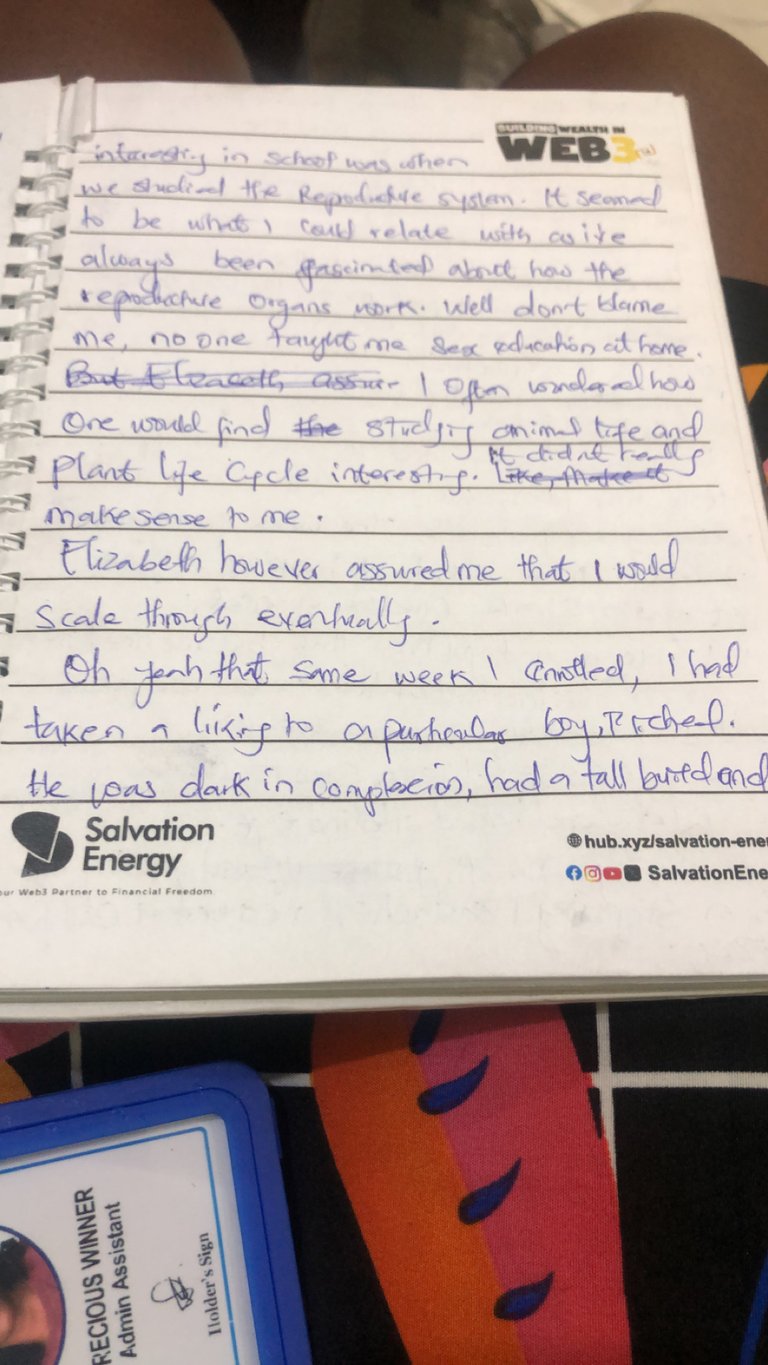 BUILDING WEALTH IN
WEB3
interesting in school was when
we studied the Reproductive system. It seemed
to be what I could relate with as i've
always been fascinated about how the
reproductive organs work. Well don't blame
me, no one taught me sex education at home.
But Elizabeth assur- I Often wondered how
One would find the studying animal life and
It didn't really
plant life Cycle interesting. Like, Make it
make sense to me.
Elizabeth however assured me that I would
Scale through eventually.
Oh yeah that same week I enrolled, I had
taken a liking to a particular boy,
He was dark in complexion, had a tall build and
Salvation
Energy
our Web3 Partner to Financial Freedom
hub.xyz/salvation-ene
SalvationEne
RECIOUS WINNER
Admin Assistant
Holder's Sign